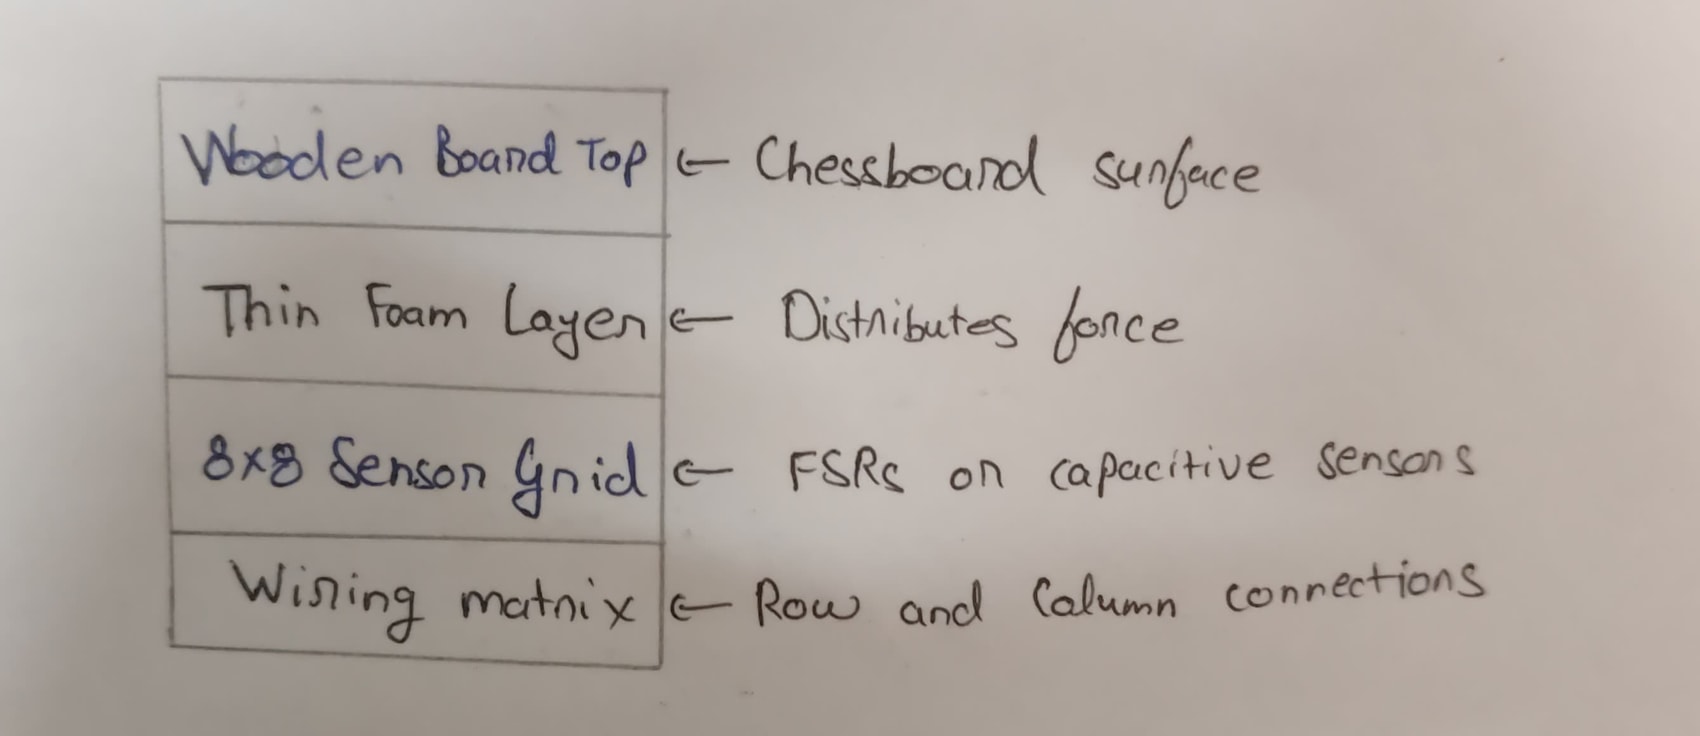 Wooden Board Top ← Chessboard surface
Thin Foam Layer ← Distributes force
8x8 Sensor Grid ← FSRs or capacitive sensors
Wiring matrix ← Row and Column connections